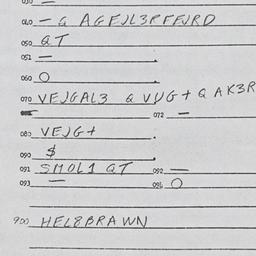 040 — Q AGEJL3RFEJRD
050 QT
051 —
060 O
070 VEJGAL3 Q VVG+ Q AK3R
— 072 —
080 VEJG+
090 $
091 SMOL1 QT 092 —
093 — 096 O
900 HEL8BRAWN